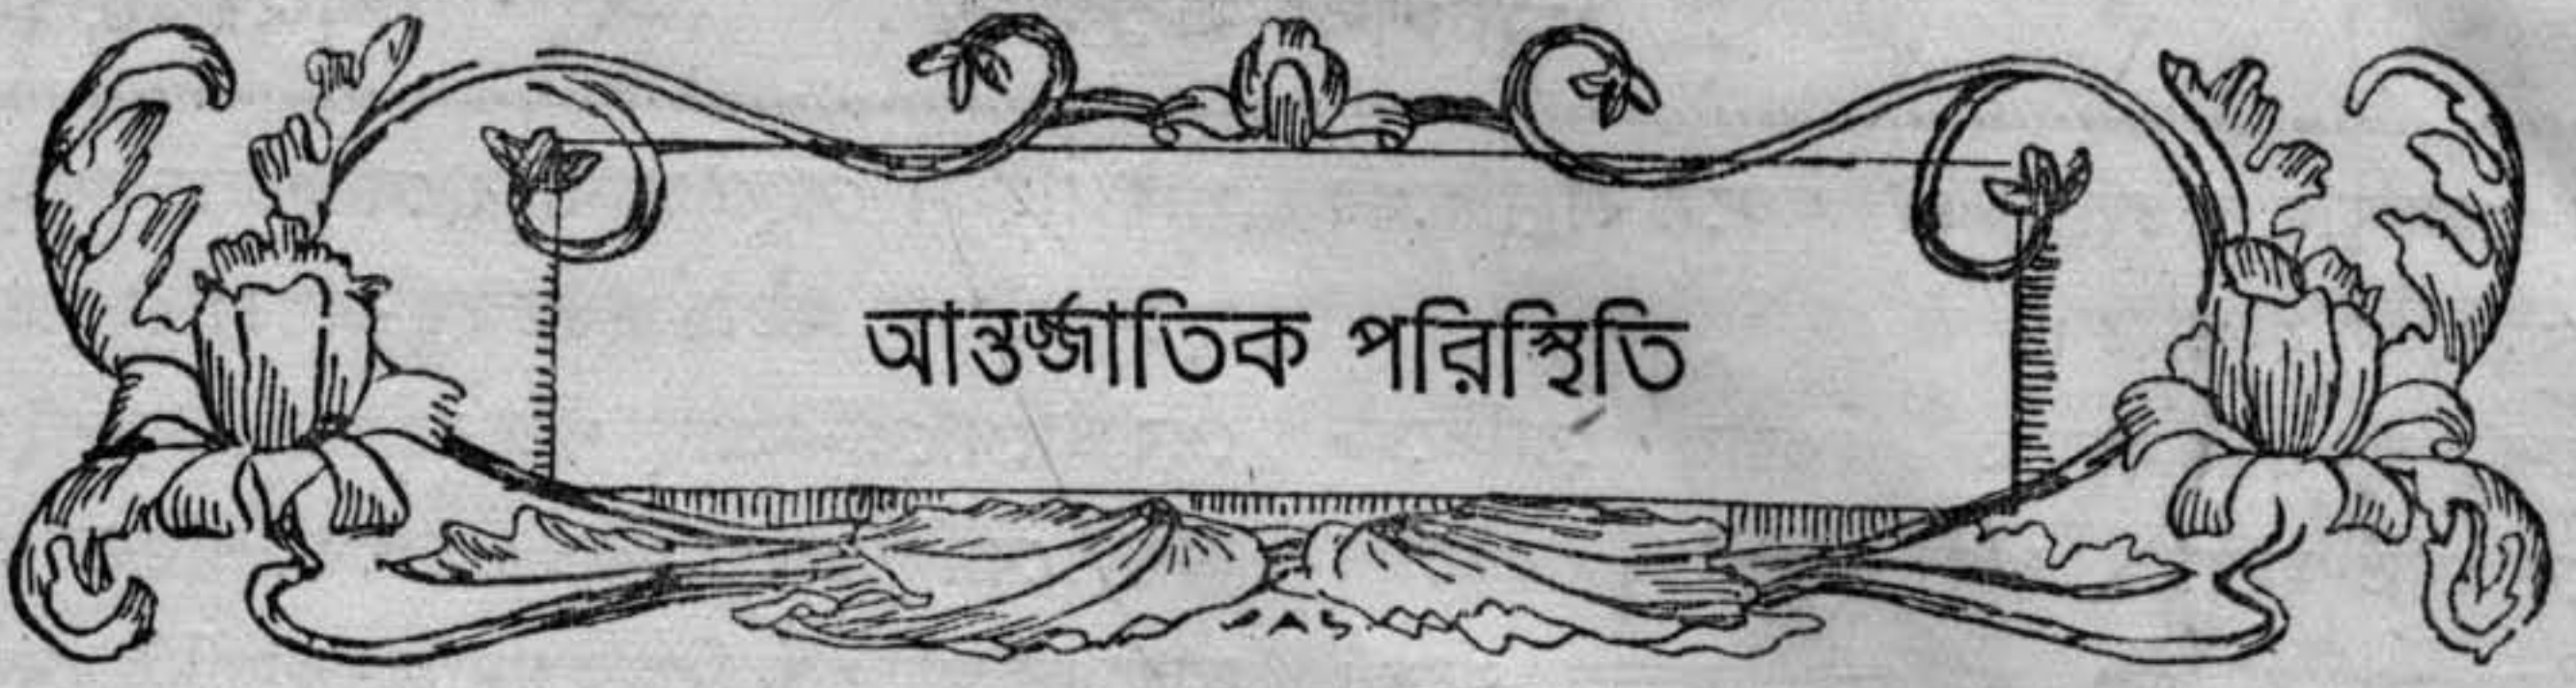 আন্তর্জ্জাতিক পরিস্থিতি